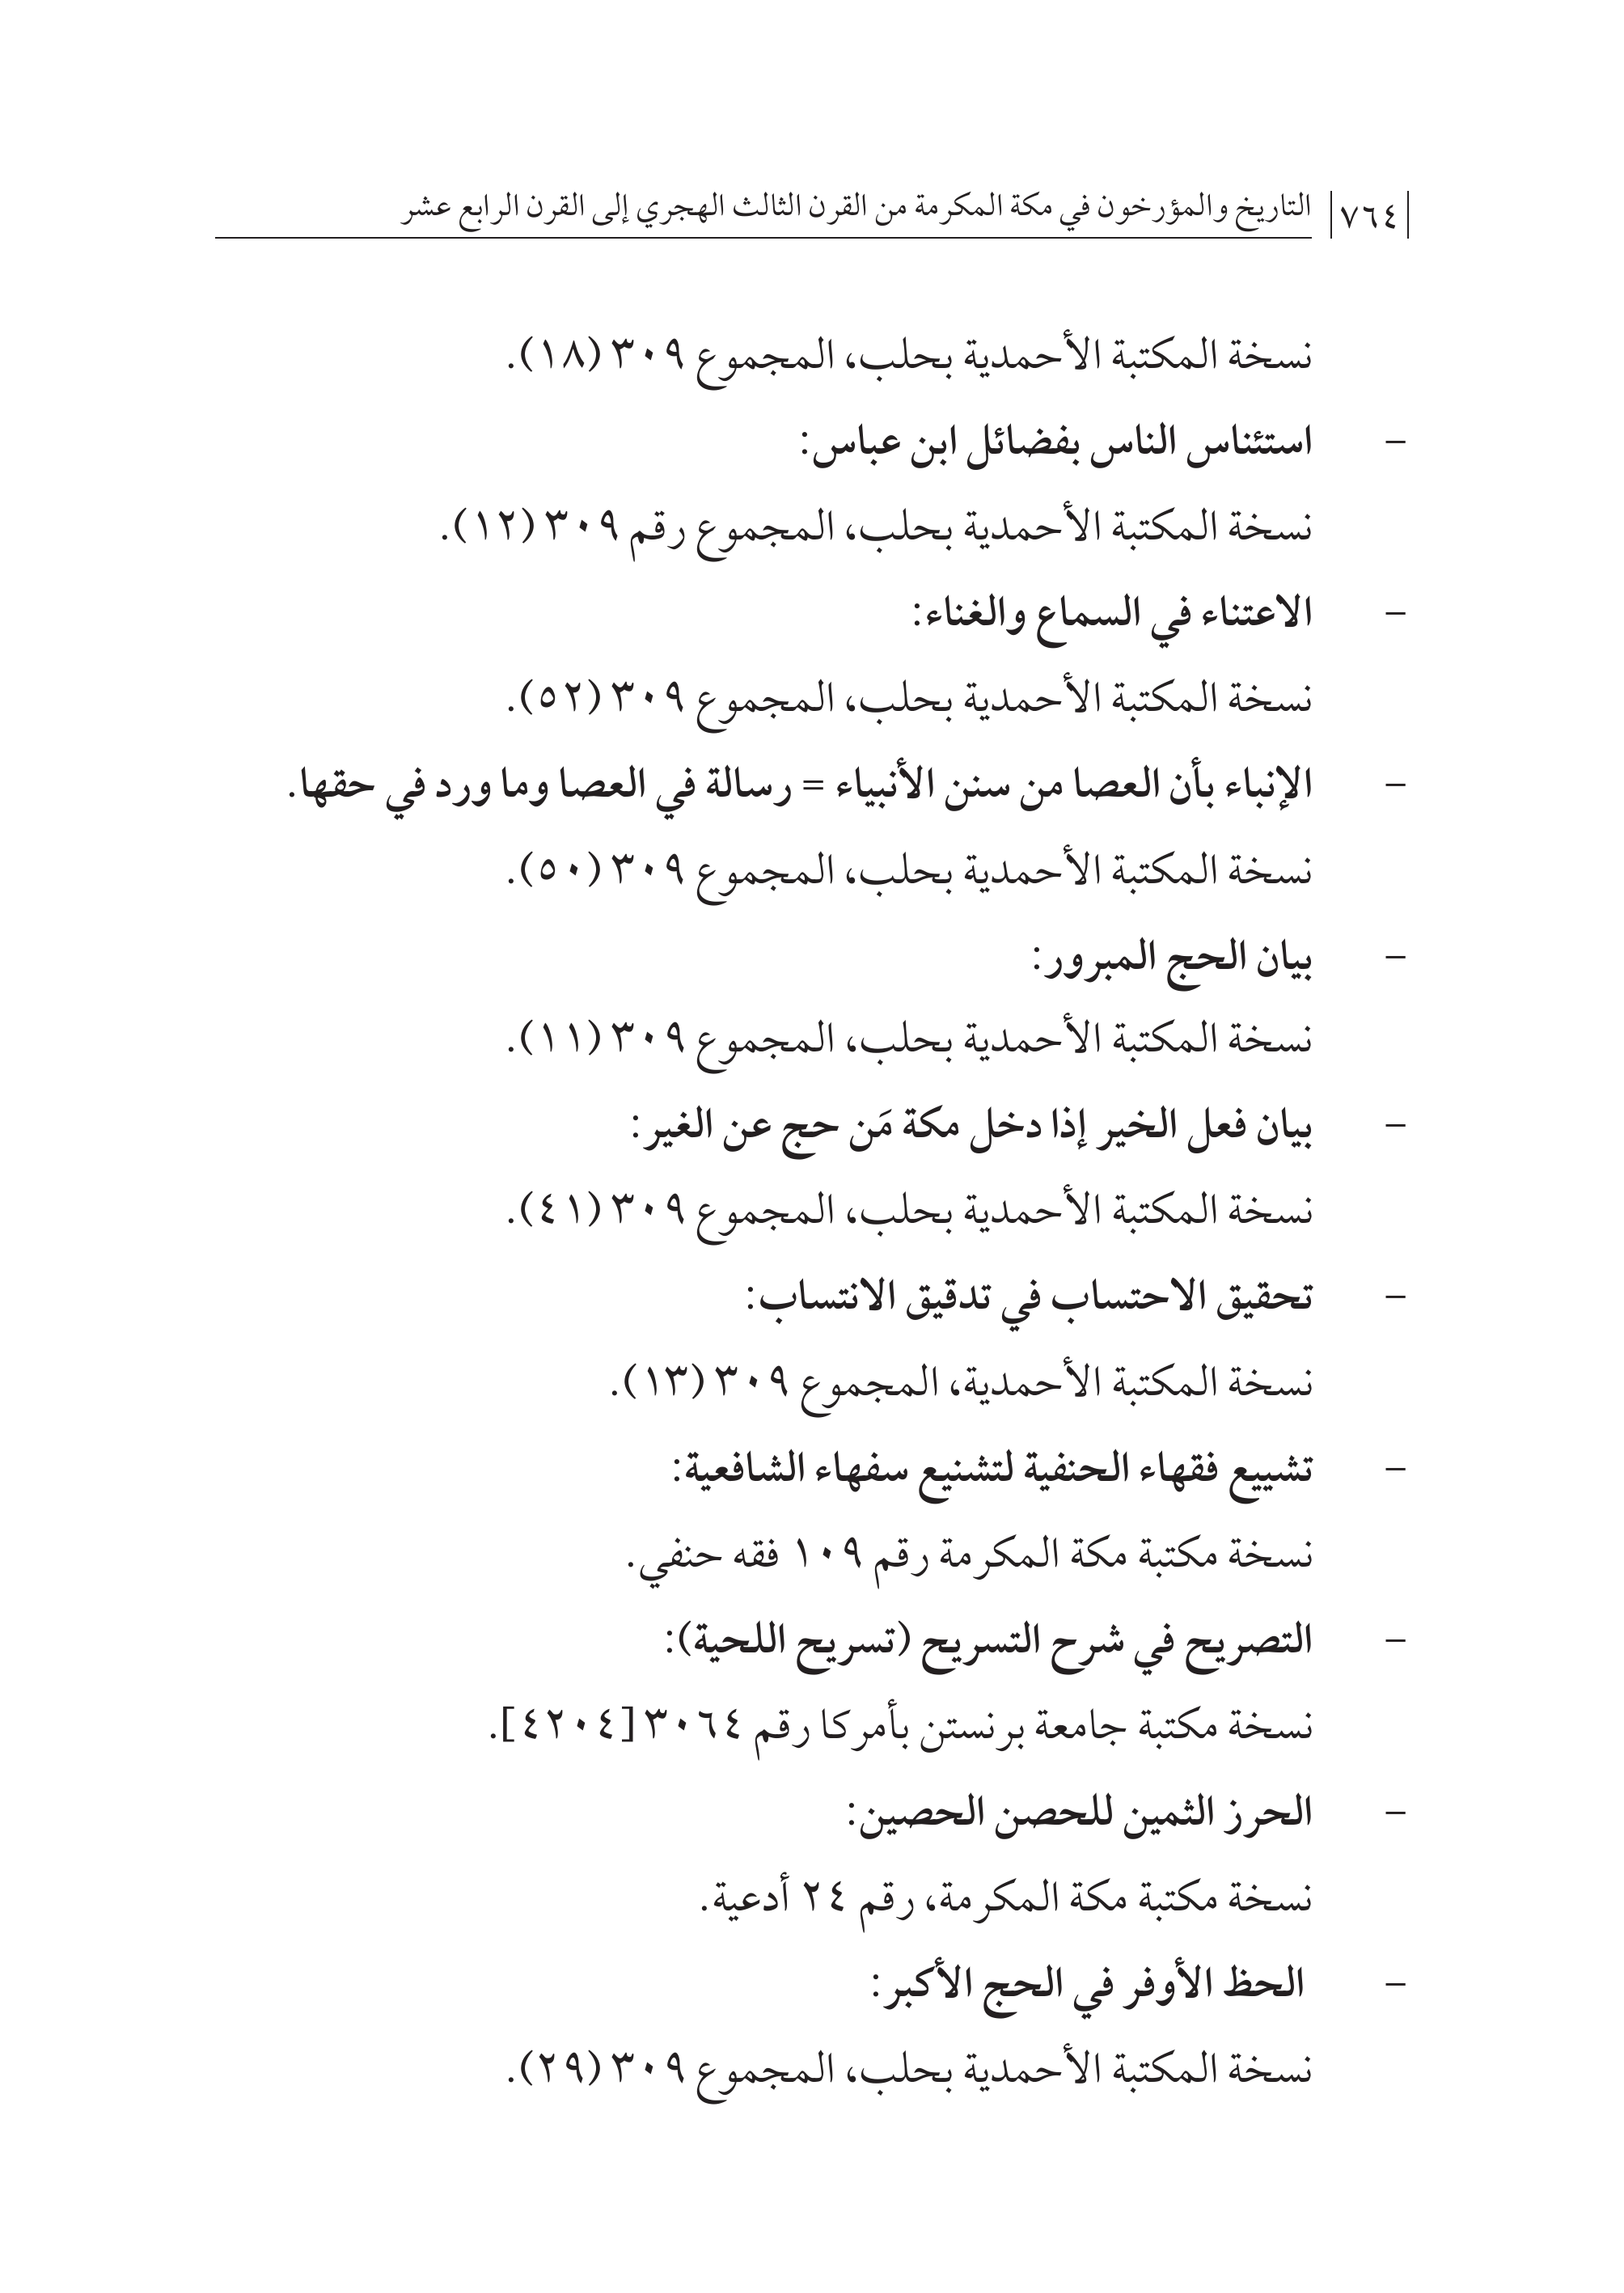 |٧٦٤| التاريخ والمؤرخون في مكة المكرمة من القرن الثالث الهجري إلى القرن الرابع عشر
نسخة المكتبة الأحمدية بحلب، المجموع ٣٠٩ (١٨).
– استئناس الناس بفضائل ابن عباس:
نسخة المكتبة الأحمدية بحلب، المجموع رقم ٣٠٩ (١٢).
– الاعتناء في السماع والغناء:
نسخة المكتبة الأحمدية بحلب، المجموع ٣٠٩ (٥٢).
– الإنباء بأن العصا من سنن الأنبياء = رسالة في العصا وما ورد في حقها.
نسخة المكتبة الأحمدية بحلب، المجموع ٣٠٩ (٥٠).
– بيان الحج المبرور:
نسخة المكتبة الأحمدية بحلب، المجموع ٣٠٩ (١١).
– بيان فعل الخير إذا دخل مكة مَن حج عن الغير:
نسخة المكتبة الأحمدية بحلب، المجموع ٣٠٩ (٤١).
– تحقيق الاحتساب في تدقيق الانتساب:
نسخة المكتبة الأحمدية، المجموع ٣٠٩ (١٣).
– تشييع فقهاء الحنفية لتشنيع سفهاء الشافعية:
نسخة مكتبة مكة المكرمة رقم ١٠٩ فقه حنفي.
– التصريح في شرح التسريح (تسريح اللحية):
نسخة مكتبة جامعة برنستن بأمركا رقم ٣٠٦٤ [٤٢٠٤].
– الحرز الثمين للحصن الحصين:
نسخة مكتبة مكة المكرمة، رقم ٢٤ أدعية.
– الحظ الأوفر في الحج الأكبر:
نسخة المكتبة الأحمدية بحلب، المجموع ٣٠٩ (٢٩).